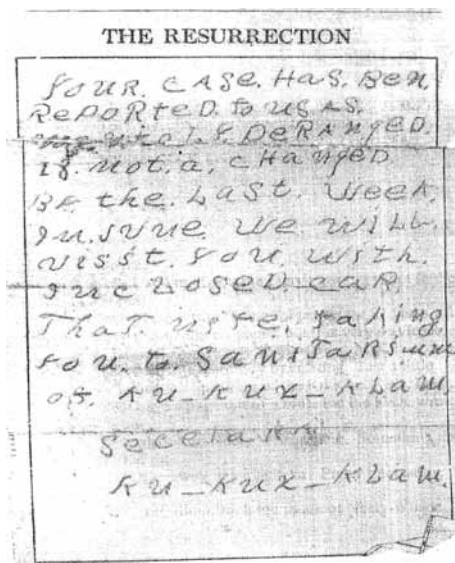 THE RESURRECTION
YOUR. CASE. HAS. BEN.
REPORTED. to US AS.
DERANGED.
IF. NOT. A. CHANGED
BE the. LAST. WEEK.
WE WILL.
VISST. YOU. WITH.
INC LOSED. CAR.
THAT. NITE. TAKING
YOU. to. SANITARSUM
OF. KU-KUX-KLAM.
KU-KUX-KLAM.